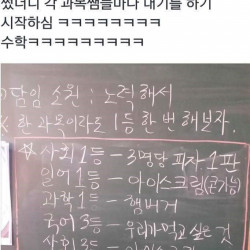 썼더니 각 과목쌤들마다 내기를 하기
시작하심 ㅋㅋㅋㅋㅋㅋㅋㅋ
수학ㅋㅋㅋㅋㅋㅋㅋㅋㅋ
담임 소원 : 노력해서
한 과목이라도 1등 한 번 해보자.
☆ 사회 1등 - 3명당 피자 1판
일어 1등 - 아이스크림
과학 1등 - 햄버거
국어 3등 - 우리가 먹고 싶은 것
사회 3등